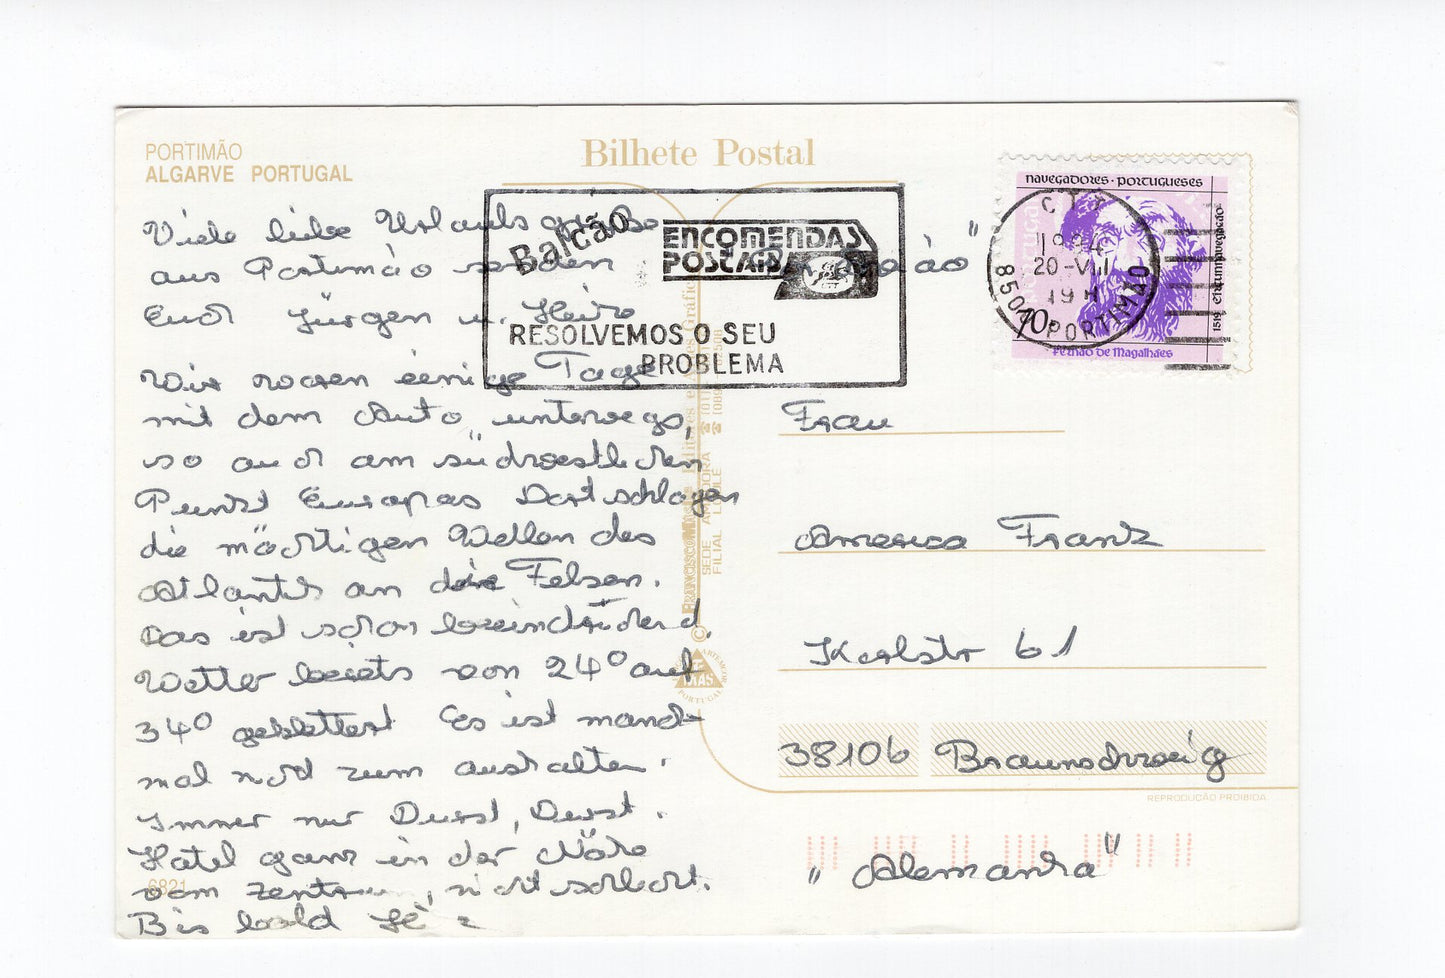 PORTIMÃO
ALGARVE PORTUGAL
Bilhete Postal
Viele liebe Urlaubsgrüße
aus Portimão senden
Euch Jürgen u.
Wir waren einige Tage
mit dem Auto unterwegs,
so auch am südwestlichen
Punkt Europas Dort schlagen
die mächtigen Wellen des
Atlantik an die Felsen.
Das ist schon beeindruckend.
Wetter bereits von 24° auf
34° geklettert Es ist manch-
mal nicht zum aushalten.
Immer nur Durst, Durst.
Hotel ganz in der Nähe
vom Zentrum, nicht schlecht.
Bis bald
6821
Balcão
ENCOMENDAS
POSTAIS
RESOLVEMOS O SEU
PROBLEMA
NAVEGADORES · PORTUGUESES
1519 CIRCUM-NAVEGAÇÃO
70,
FERNÃO DE MAGALHÃES
CTT
20-VIII
19 H
8500 PORTIMÃO
SEDE AMADORA
FILIAL LOULÉ
ARTEMCOR
PORTUGAL
Frau
Frank
Karlstr 61
38106 Braunschweig
REPRODUÇÃO PROIBIDA
„Alemanha"